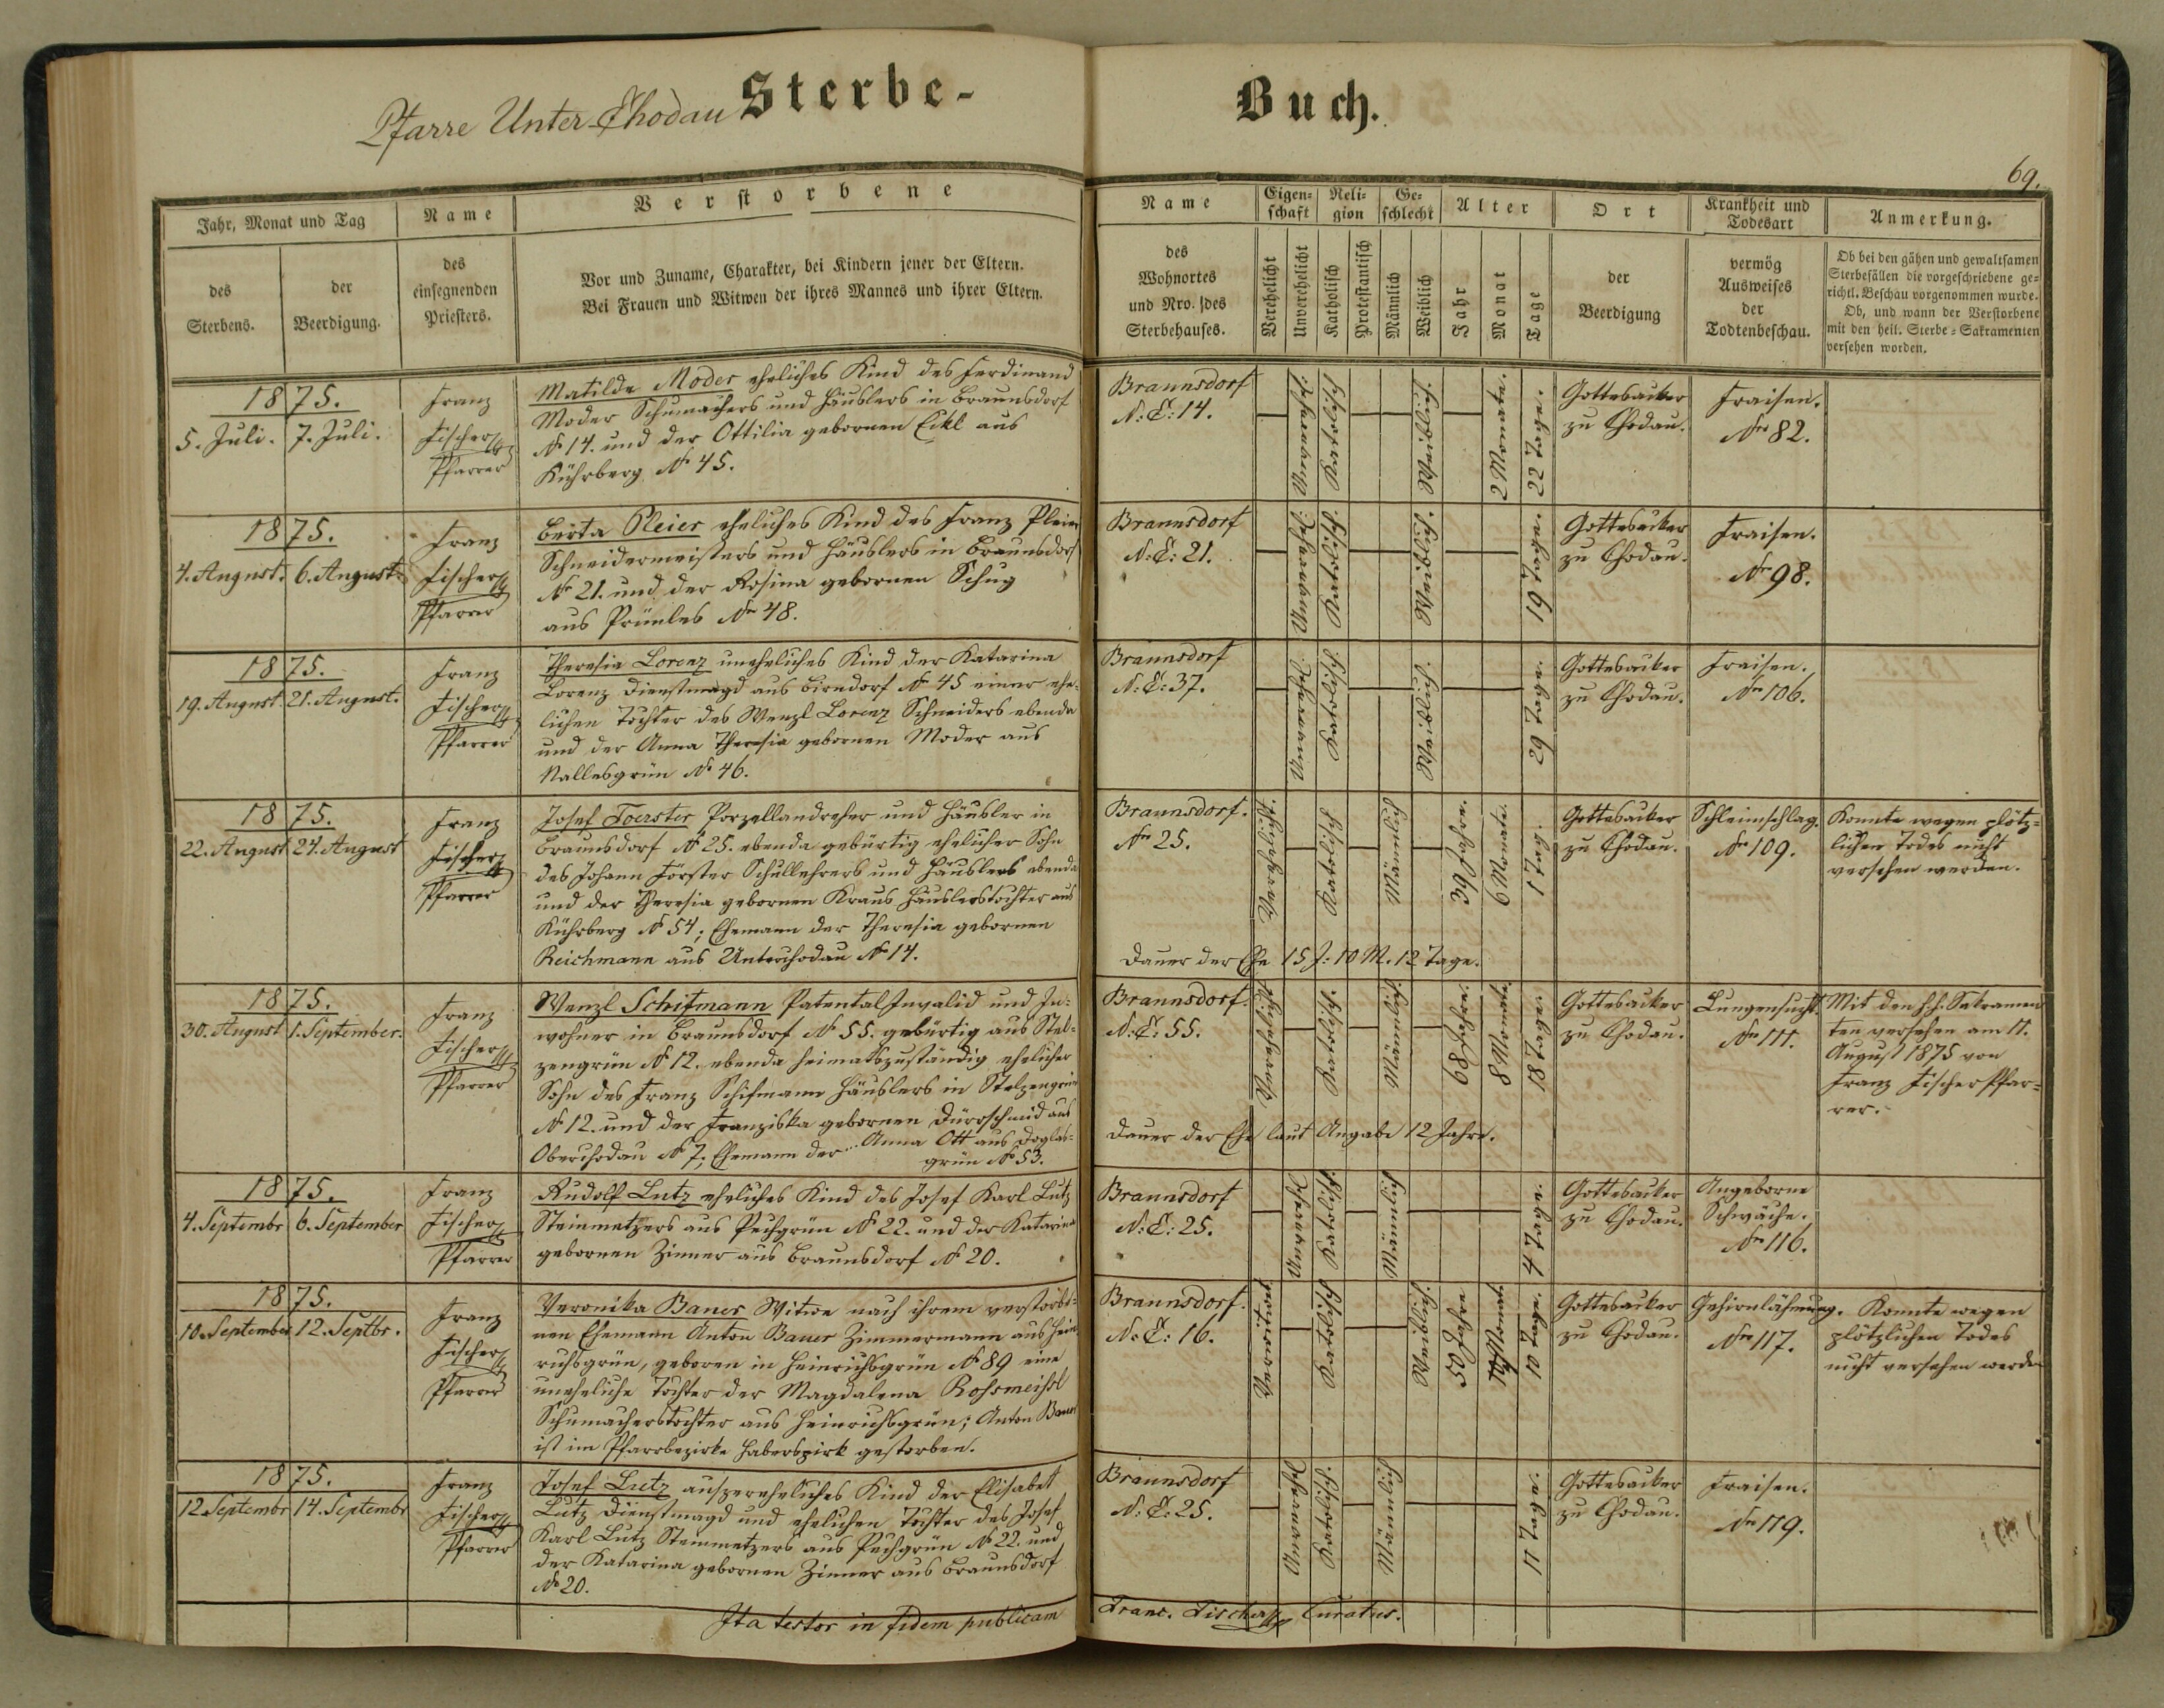 Pfarre Unter-Chodau Sterbe-
Buch.
69.
Jahr, Monat und Tag
Name
Verstorbene
des
Sterbens.
der
Beerdigung.
des
einsegnenden
Priesters.
Vor und Zuname, Charakter, bei Kindern jener der Eltern.
Bei Frauen und Witwen der ihres Mannes und ihrer Eltern.
Name
Eigen-
schaft
Reli-
gion
Ge-
schlecht
Alter
Ort
Krankheit und
Todesart
Anmerkung.
des
Wohnortes
und Nro. des
Sterbehauses.
Verehelicht
Unverehelicht
Katholisch
Protestantisch
Männlich
Weiblich
Jahr
Monat
Tage
der
Beerdigung
vermög
Ausweises
der
Todtenbeschau.
Ob bei den gähen und gewaltsamen
Sterbefällen die vorgeschriebene ge-
richtl. Beschau vorgenommen wurde.
Ob, und wann der Verstorbene
mit den heil. Sterbe-Sakramenten
versehen worden.
1875.
5. Juli. 7. Juli.
Franz
Fischer
Pfarrer
Matilde Moder eheliches Kind des Ferdinand
Moder Schumachers und Häuslers in Braunsdorf
№ 14. und der Ottilia gebornen Eckl aus
Kührberg № 45.
Braunsdorf
N: C: 14.
Unvereh:
Katolisch
Weiblich.
2 Monate.
22 Tage.
Gottesacker
zu Chodau.
Fraisen.
Nro 82.
1875.
4. August. 6. August.
Franz
Fischer
Pfarrer
Berta Pleier eheliches Kind des Franz Pleier
Schneidermeisters und Häuslers in Braunsdorf
№ 21. und der Rosina gebornen Schug
aus Prünles № 48.
Braunsdorf
N: C: 21.
Unvereh:
Katolisch.
Weiblich.
19 Tage.
Gottesacker
zu Chodau.
Fraisen.
Nro 98.
1875.
19. August. 21. August.
Franz
Fischer
Pfarrer
Theresia Lorenz uneheliches Kind der Katarina
Lorenz Dienstmagd aus Birndorf № 45 einer ehe-
lichen Tochter des Wenzl Lorenz Schneiders ebenda
und der Anna Theresia gebornen Moder aus
Nallesgrün № 46.
Braunsdorf
N: C: 37.
Unvereh.
Katolisch.
Weiblich.
29 Tage.
Gottesacker
zu Chodau.
Fraisen.
Nro 106.
1875.
22. August 24. August
Franz
Fischer
Pfarrer
Josef Foerster Porzellandreher und Häusler in
Braunsdorf № 25. ebenda gebürtig ehelicher Sohn
des Johann Förster Schullehrers und Häuslers ebenda
und der Theresia gebornen Kraus Häuslerstochter aus
Kührberg № 54; Ehemann der Theresia gebornen
Reichmann aus Unterchodau № 14.
Braunsdorf.
Nro 25.
Verehelicht.
Katolisch
Männlich
39 Jahre.
6 Monate.
1 Tag.
Gottesacker
zu Chodau.
Schleimschlag.
Nro 109.
Konnte wegen plötz-
lichen Todes nicht
versehen werden.
Dauer der Ehe 15 J: 10 M. 12 Tage.
1875.
30. August 1. September.
Franz
Fischer
Pfarrer
Wenzl Schifmann Patental Invalid und In-
wohner in Braunsdorf № 55. gebürtig aus Stel-
zengrün № 12. ebenda heimatszuständig ehelicher
Sohn des Franz Schifmann Häuslers in Stelzengrün
№ 12. und der Franziska gebornen Dürrschmid aus
Oberchodau № 7; Ehemann der Anna Ott aus Doglas-
grün № 53.
Braunsdorf.
N: C: 55.
Verehelicht
Katolisch.
Männlich.
68 Jahre.
8 Monate.
18 Tage.
Gottesacker
zu Chodau.
Lungensucht.
Nro 111.
Mit den hh: Sakramen
ten versehen am 11.
August 1875 von
Franz Fischer Pfar-
rer.
Dauer der Ehe laut Angabe 12 Jahre.
1875.
4. Septembr 6. September
Franz
Fischer
Pfarrer
Rudolf Lutz eheliches Kind des Josef Karl Lutz
Steinmetzers aus Pechgrün № 22. und der Katarina
gebornen Zinner aus Braunsdorf № 20.
Braunsdorf
N: C: 25.
Unvereh.
Katolisch.
Männlich
4 Tage.
Gottesacker
zu Chodau.
Angeborne
Schwäche.
Nro 116.
1875.
10. September 12. Septbr.
Franz
Fischer
Pfarrer
Veronika Bauer Witwe nach ihrem verstorbe-
nen Ehemann Anton Bauer Zimmermann aus Hein-
richsgrün, geboren in Heinrichsgrün № 89 eine
uneheliche Tochter der Magdalena Rossmeissl
Schumacherstochter aus Heinrichsgrün; Anton Bauer
ist im Pfarrbezirke Haberspirk gestorben.
Braunsdorf.
N: C: 16.
Verwitwet
Katolisch
Weiblich.
50 Jahre
10 Tage.
Gottesacker
zu Chodau.
Gehirnlähmung.
Nro 117.
Konnte wegen
plötzlichen Todes
nicht versehen werden
1875.
12 Septembr 14. Septembr
Franz
Fischer
Pfarrer
Josef Lutz ausserehliches Kind der Elisabet
Lutz Dienstmagd und ehelichen Tochter des Josef
Karl Lutz Steinmetzers aus Pechgrün № 22. und
der Katarina gebornen Zinner aus Braunsdorf
№ 20.
Braunsdorf
N: C: 25.
Unvereh
Katolisch.
Männlich
17 Tage.
Gottesacker
zu Chodau.
Fraisen.
Nro 119.
Ita testor in fidem publicam
Franc. Fischer Curatus.